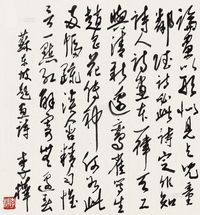 論畫以形似見與兒童
鄰賦詩必此詩定非知
詩人詩畫本一律天工
與清新邊鸞雀寫生
趙昌花傳神何如此
兩幅疏淡含精勻誰
言一點紅解寄無邊春
蘇東坡題畫詩 李鐸